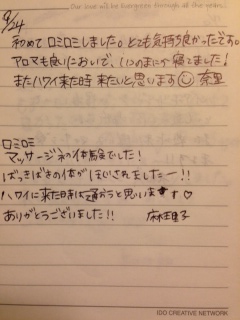 Our love will be evergreen through all the years.
9/24
初めて ロミロミしました。とても気持ち良かったです。
アロマも良いにおいで、いつのまにか寝てました!
またハワイ来た時 来たいと思います 奈里
ロミロミ
マッサージ初体験でした!
ばっきばきの体がほぐされましたー!!
ハワイに来た時は通おうと思います♡
ありがとうございました!! 麻里子
IDD CREATIVE NETWORK